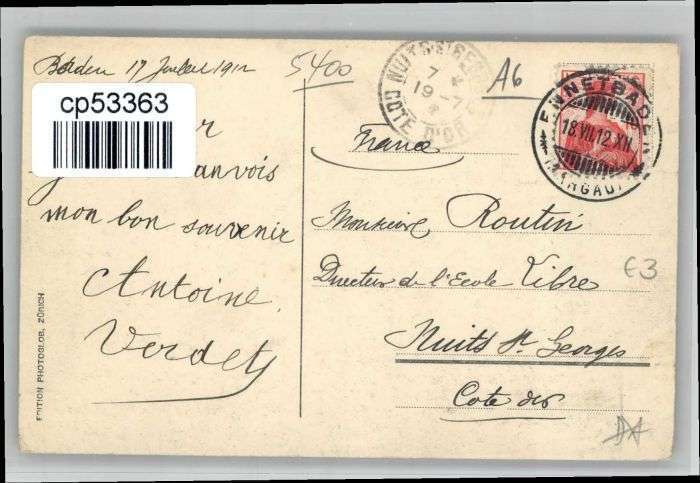 Baden 17 Juillet 1912
5400
A6
cp53363
NUITS-ST-GEORGES
7 *
19-7
COTE D'OR
ENNETBADEN
18.VII.12.XII
(AARGAU)
France
envois
mon bon souvenir
Antoine
Verdet
Monsieur Routin
Directeur de l'Ecole Libre
E3
Nuits St Georges
Cote d'or
EDITION PHOTOGLOB, ZÜRICH